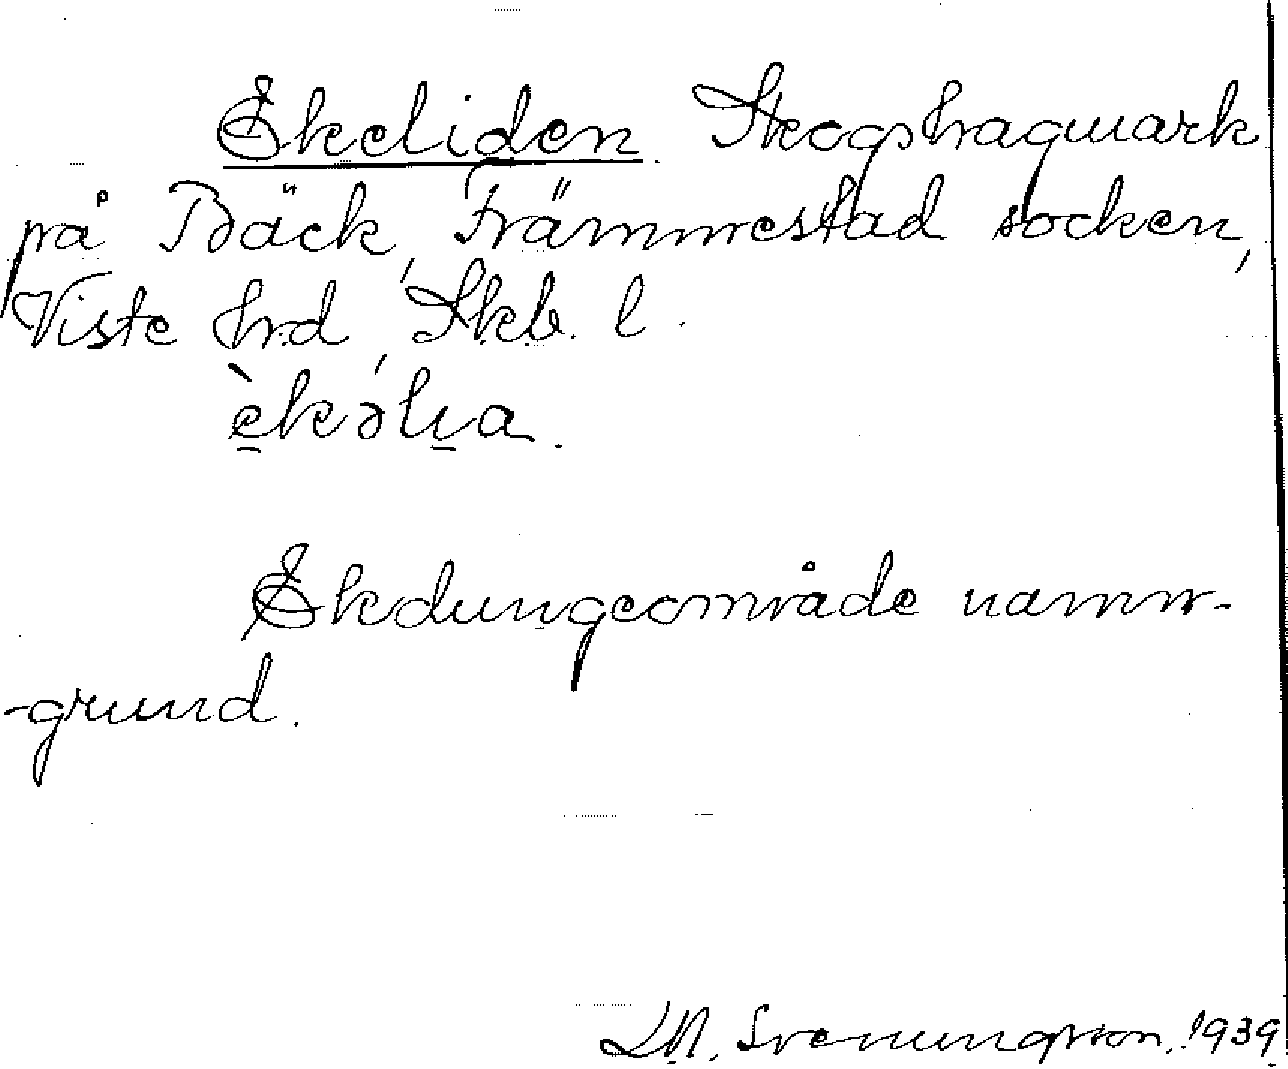 Ekeliden. Skogshagmark
på Bäck, Främmestad socken,
Viste hrd, Skb. l.
Ekdungeområde namn-
-grund.
Svenungsson. 1939